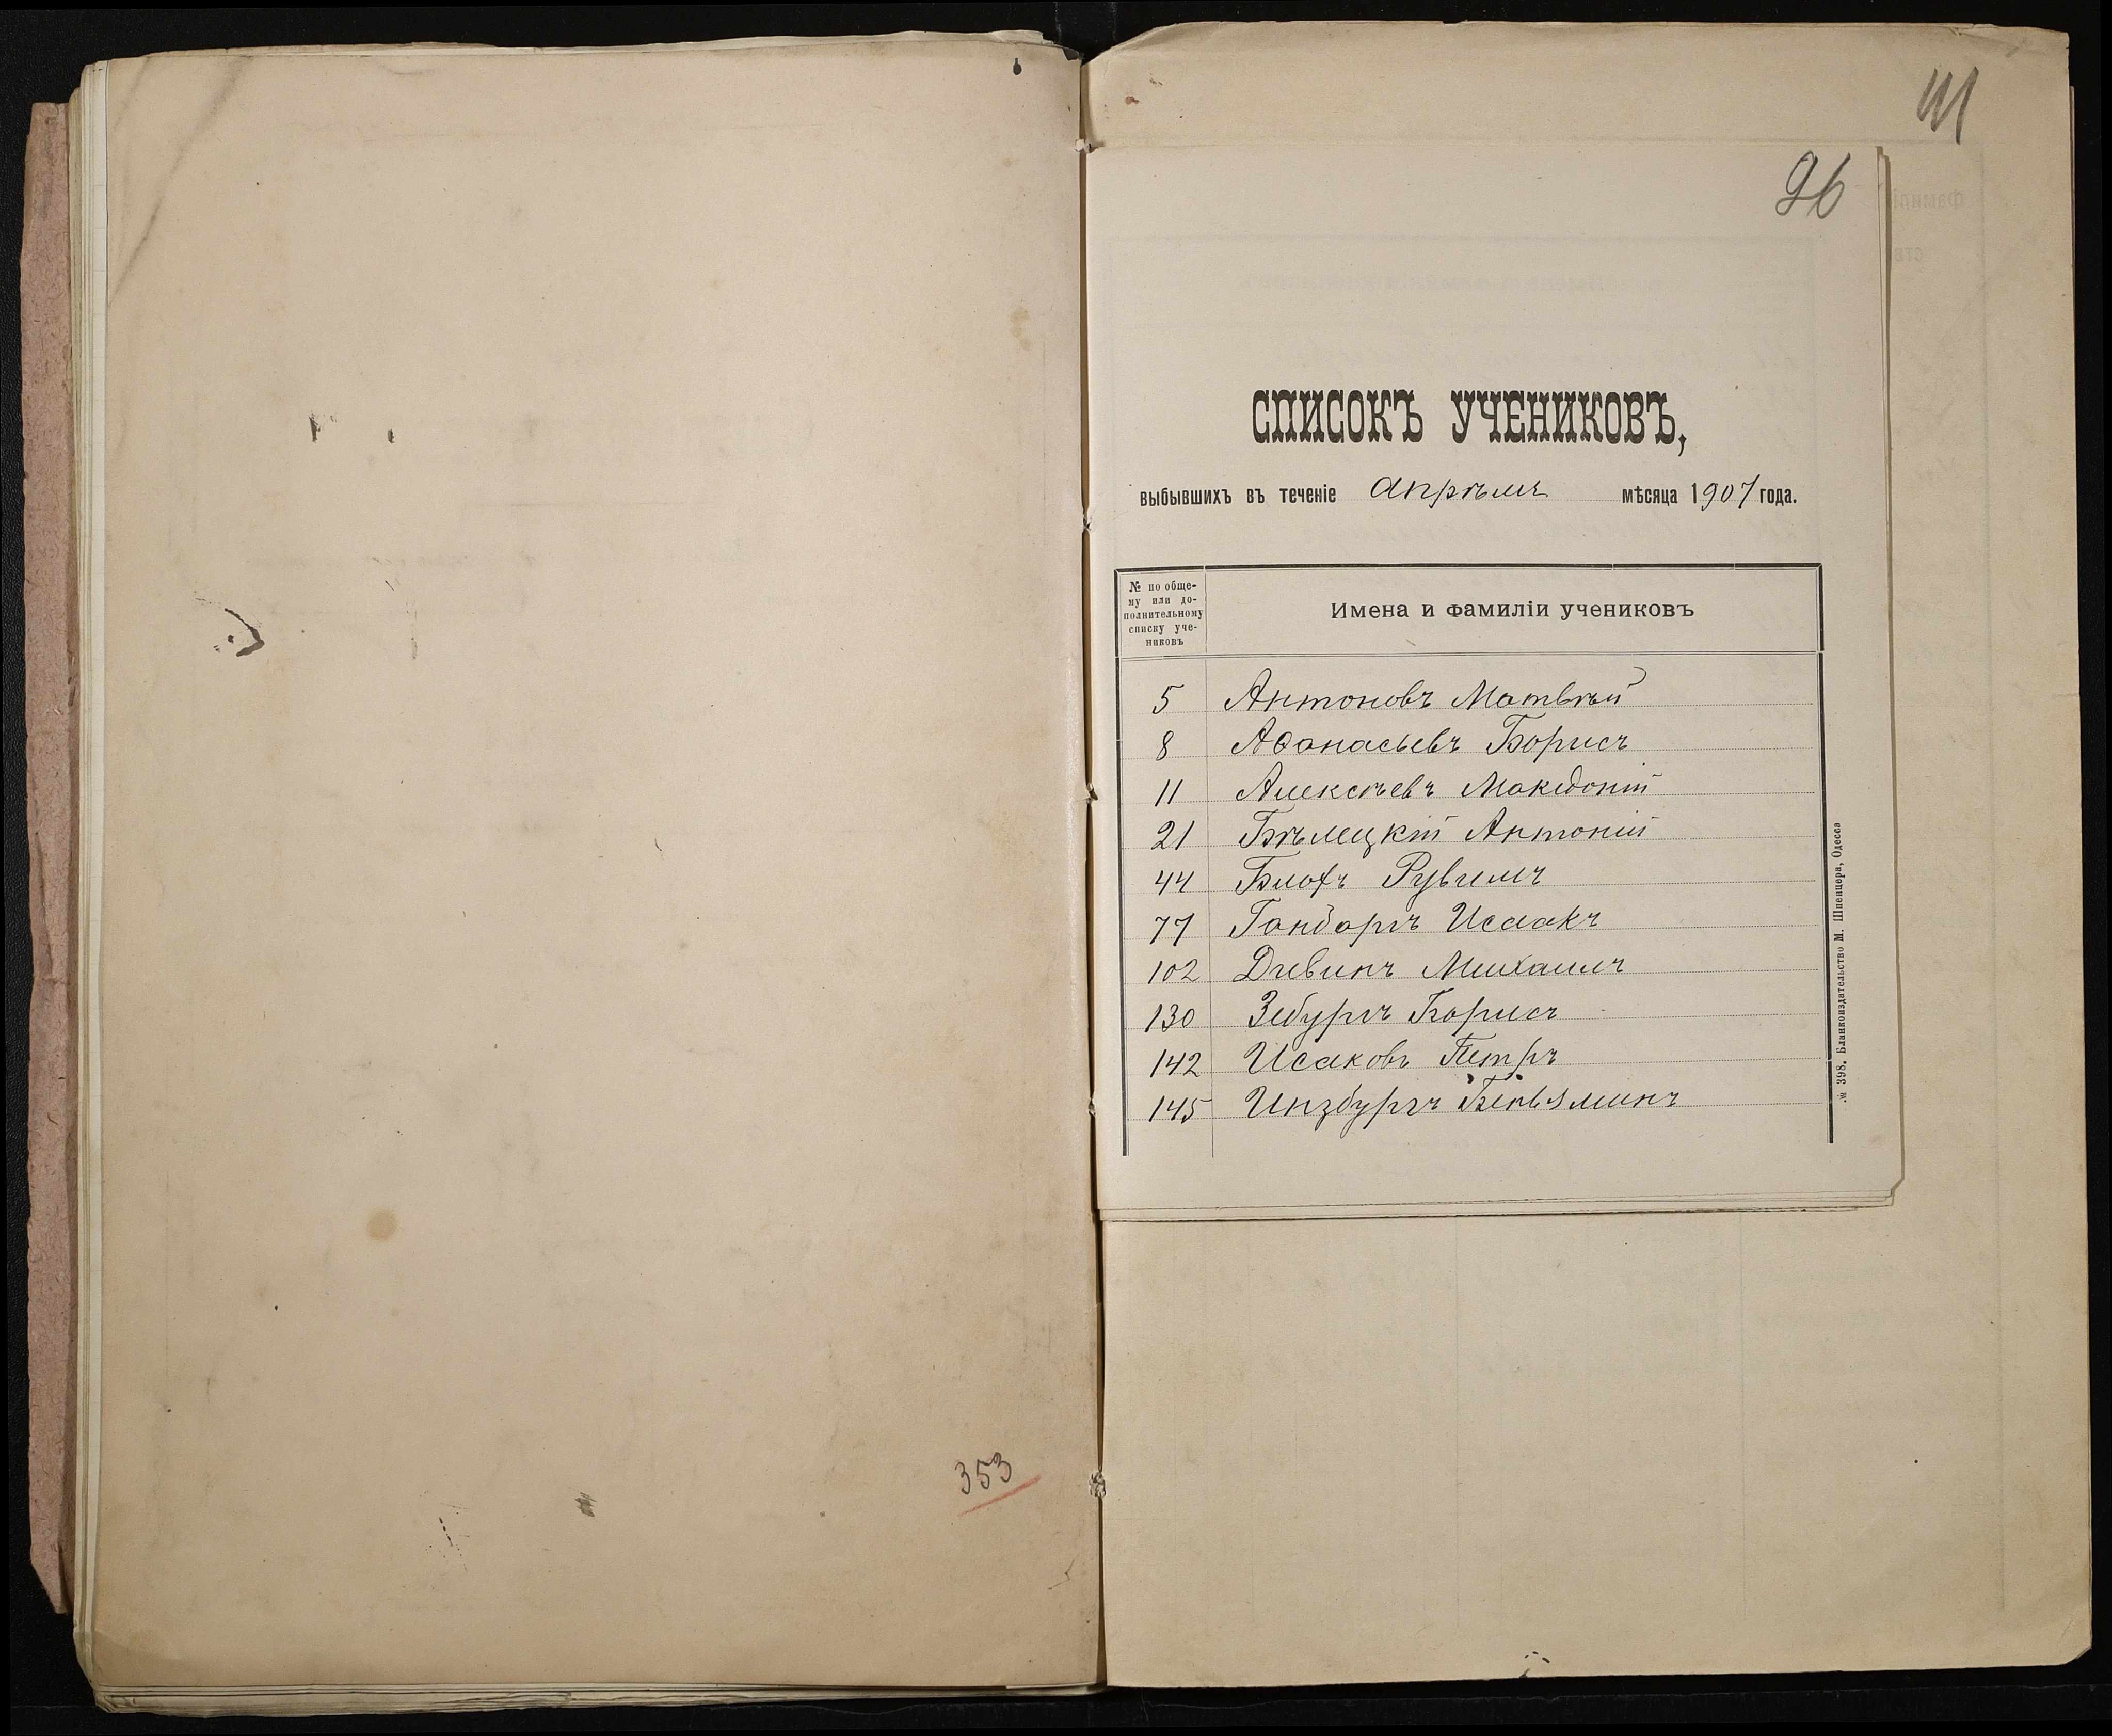 353
96
СПИСОКЪ УЧЕНИКОВЪ,
выбывшихъ въ теченіе Апрѣль мѣсяца 1907 года.
№ по обще-
му или до-
полнительному
списку уче-
никовъ
Имена и фамиліи учениковъ
5 Антоновъ Матвѣй
8 Аѳанасьевъ Борисъ
11 Алексѣевъ Македоній
21 Бѣлецкій Антоній
44 Блохъ Рувимъ
77 Исаакъ
102 Михаилъ
130 Борисъ
142 Исаковъ Петръ
145 Инзбургъ Беньяминъ
№ 398. Бланкоиздательство М. Шпенцера, Одесса